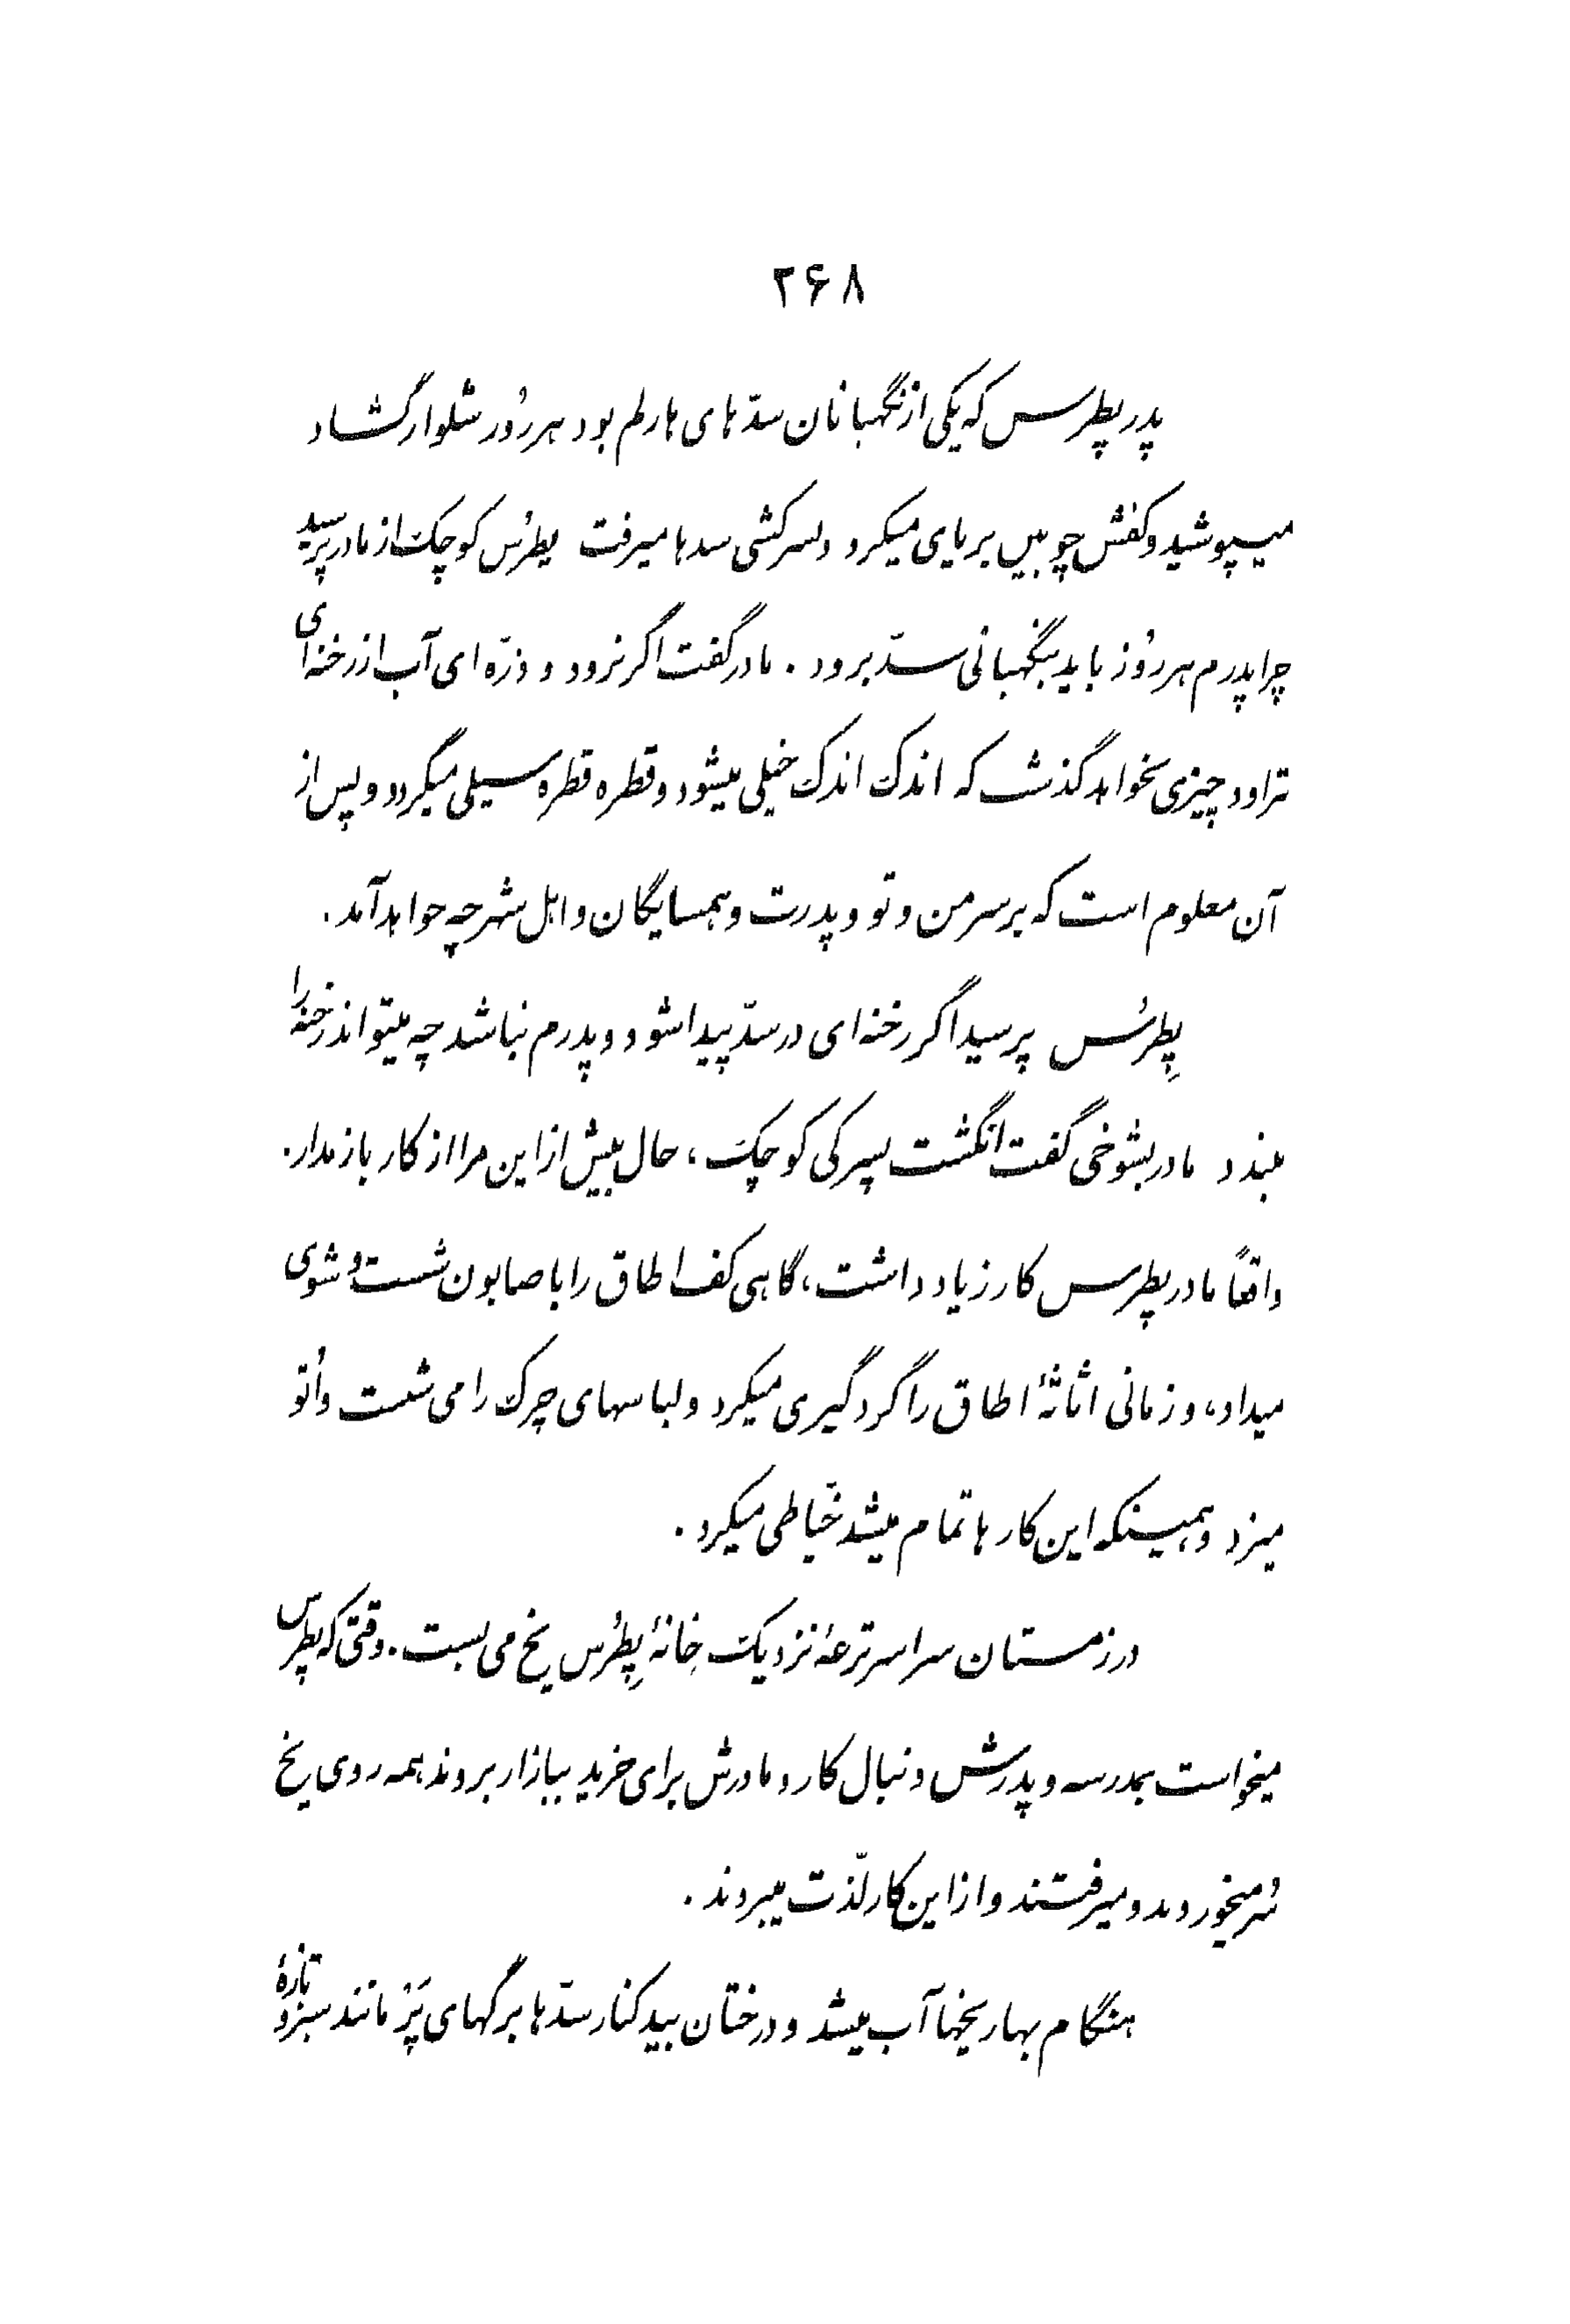 ۲۶۸
پدر پطرس که یکی از نگهبانان سدّهای هارلم بود هر روُز شلوار گشاد
میپوشید و کفش چوبین بر پای میکرد و بسرکشی سدها میرفت پطرُس کوچک از مادر پرسید
چرا پدرم هر روُز باید بنگهبانی سدّ برود . مادر گفت اگر نرود و ذرّه ای آب از رخنه ای
تراود چیزی نخواهد گذشت که اندک اندک خیلی میشود و قطره قطره سیلی میگردد و پس از
آن معلوم است که بر سر من و تو و پدرت و همسایگان و اهل شهر چه خواهد آمد .
پِطرُس پرسید اگر رخنه ای در سدّ پیدا شود و پدرم نباشد چه میتواند رخنه را
ببندد مادر بشوخی گفت انگشت پسرکی کوچک ، حال بیش از این مرا از کار باز مدار .
واقعاً مادر پطرس کار زیاد داشت ، گاهی کف اطاق را با صابون شست و شوی
میداد ، و زمانی اثاثهٔ اطاق را گردگیری میکرد و لباسهای چرک را می شست و اُتو
میزد و همینکه این کارها تمام میشد خیّاطی میکرد .
در زمستان سراسر ترعهٔ نزدیک خانهٔ پِطرُس یخ می بست . وقتی که پطرس
میخواست بمدرسه و پدرش دنبال کار و مادرش برای خرید ببازار بروند همه روی یخ
سُر میخوردند و میرفتند و از این کار لذّت میبردند .
هنگام بهار یخها آب میشد و درختان بید کنار سدّها برگهای پَرْ مانند سبز و تازهٔ